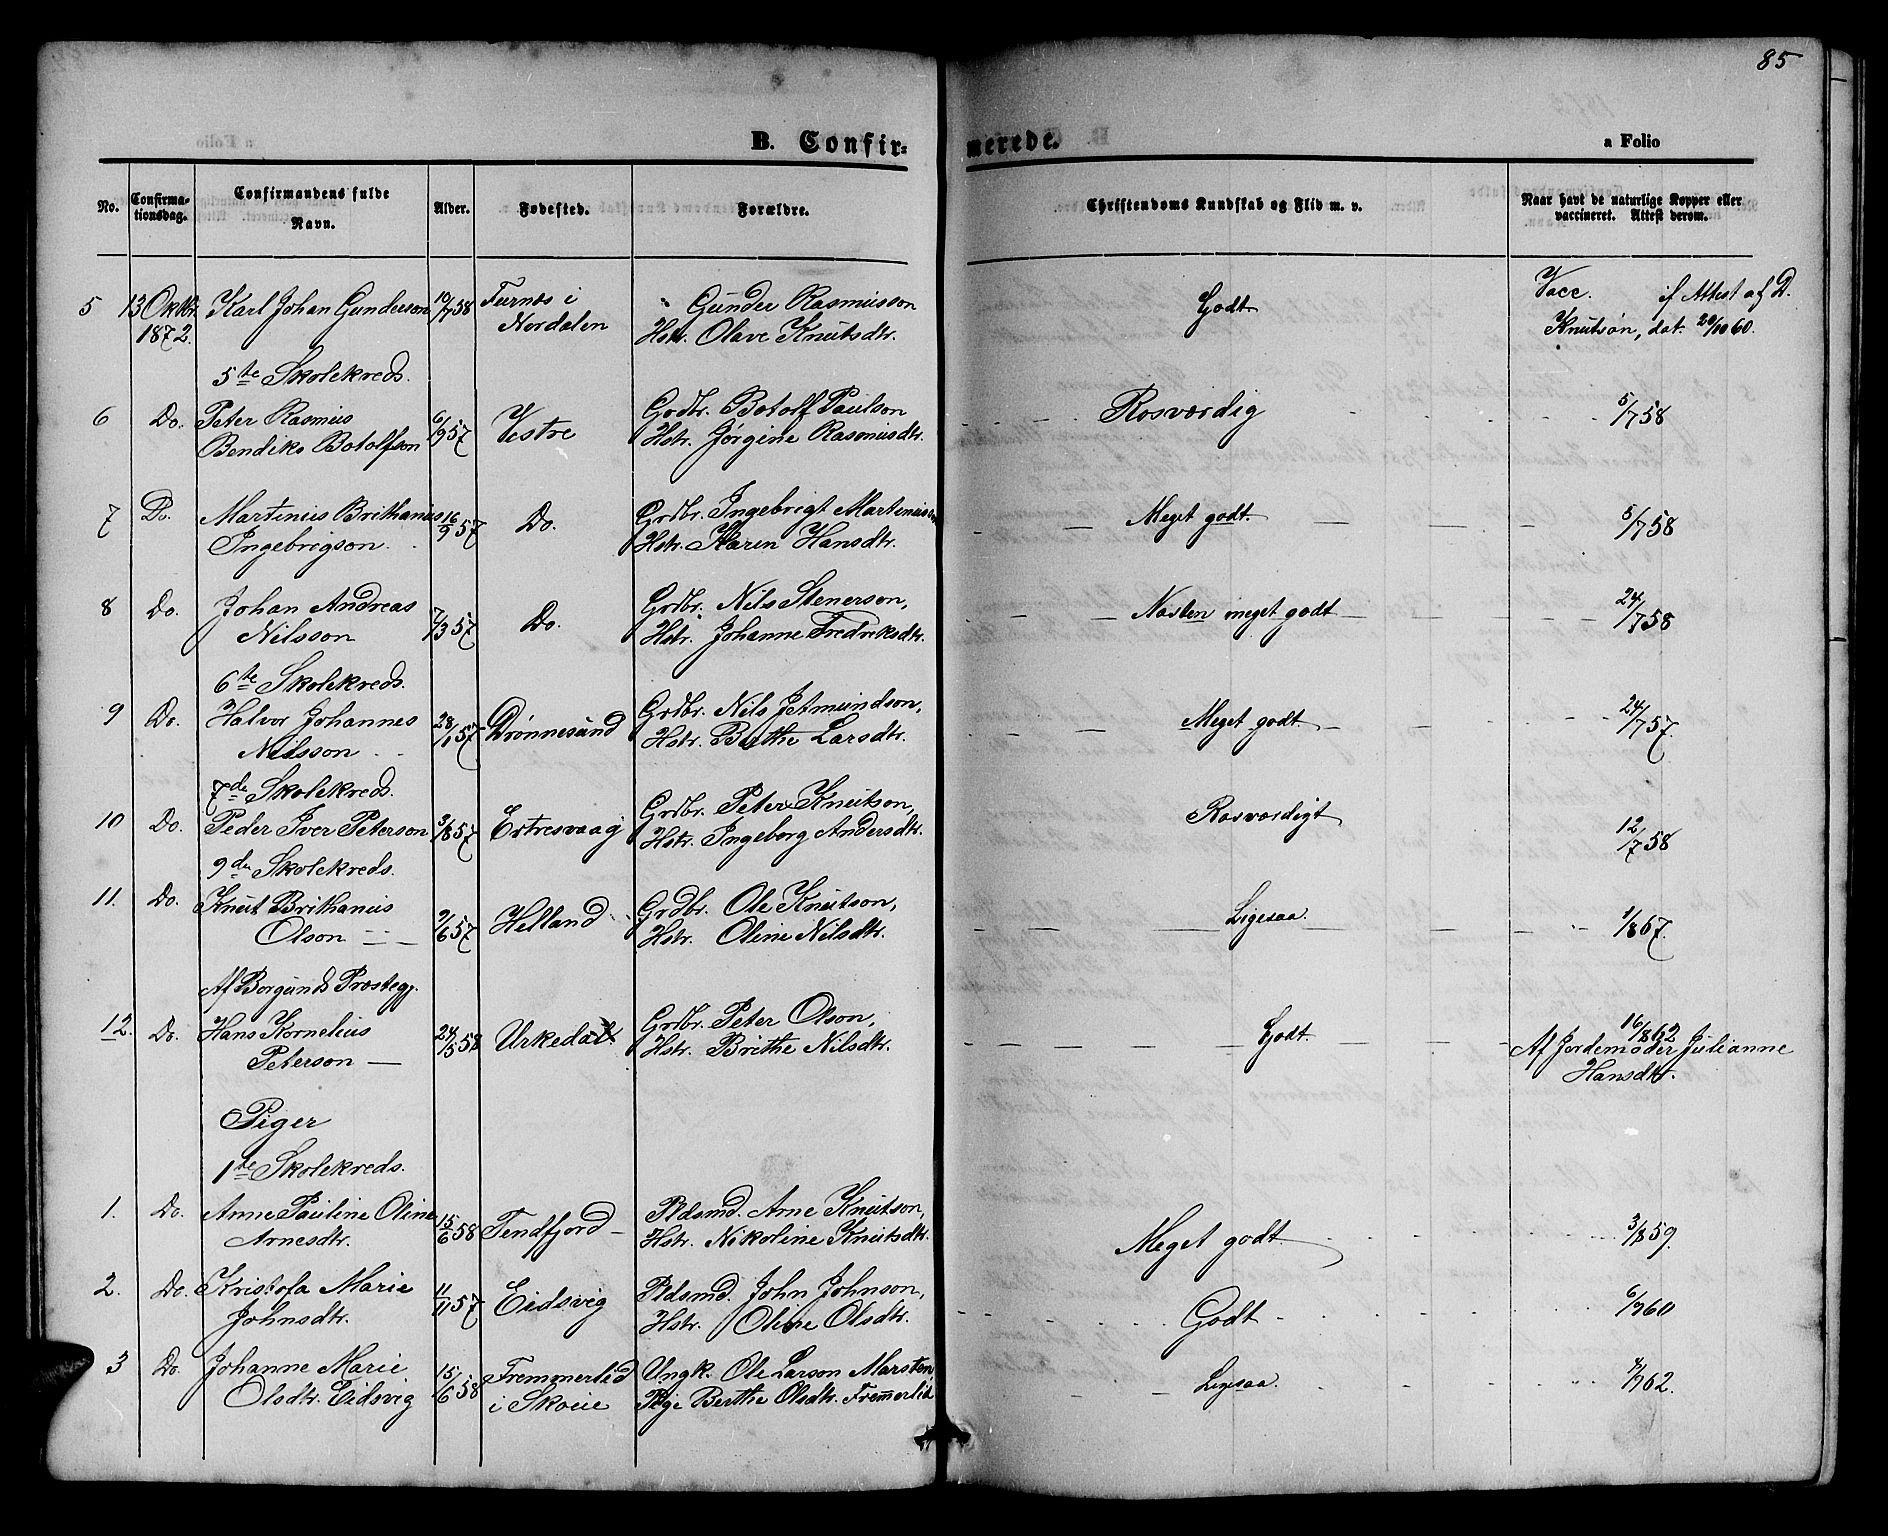 85
B. Confir=
merede.
a Folio
No.
Confirma-
tionsdag.
Confirmandens fulde
Navn.
Alder.
Fødested.
Forældre.
Christendoms Kundskab og Flid m. v.
Naar havt de naturlige Kopper eller
vaccineret. Attest derom.
5 13 Oktbr. Karl Johan Gunderson 10/7 58 Furnæs i Gunder Rasmusson Godt Vacc. if Attest af D.
1872. Nordalen Hstr. Olave Knutsdtr. Knutsøn, dat. 20/10 60.
5te Skolekreds.
6 Do. Peter Rasmus 6/9 57 Vestre Grdbr. Botolf Paulson Rosværdig 5/7 58
Bendiks Botolfson Hstr. Jørgine Rasmusdtr.
7 Do. Martinus Brithanus 16/9 57 Do. Grdbr. Ingebrigt Martinusson Meget godt. 5/7 58
Ingebrigson. Hstr. Karen Hansdtr.
8 Do. Johan Andreas 7/3 57 Do. Grdbr. Nils Stenerson, Næsten meget godt 24/7 58
Nilsson Hstr. Johanne Fredriksdtr.
6te Skolekreds.
9 Do. Halvor Johannes 28/1 57 Drønnesund Grdbr. Nils Jetmundson, Meget godt 24/7 57.
Nilsson Hstr. Berthe Larsdtr.
7de Skolekreds.
10 Do. Peder Iver Peterson 3/8 57 Ertresvaag Grdbr. Peter Knutson, Rosværdigt 12/7 58
Hstr. Ingeborg Andersdtr.
9de Skolekreds.
11. Do. Knut Brithanus 9/6 57 Helland Grdbr. Ole Knutson, Ligesaa. 1/8 67.
Olson Hstr. Oline Nilsdtr.
Af Borgunds Præstegj.
12. Do. Hans Kornelius 24/5 58 Urkedal Grdbr. Peter Olson, Godt. 16/8 62
Peterson Hstr. Brithe Nilsdtr. Af Jordemoder Julianne
Hansdtr.
Piger
1te Skolekreds.
1. Do. Anne Pauline Oline 15/6 58 Tendfjord Pldsmd. Arne Knutson, Meget godt 3/8 59.
Arnesdtr. Hstr. Nikoline Knutsdtr.
2. Do. Kristofa Marie 11/11 57 Eidsvig Pldsmd. John Johnson, Godt 6/7 60
Johnsdtr. Hstr. Oline Olsdtr.
3 Do. Johanne Marie 15/6 58 Fremmerlid Ungk. Ole Larson Marsten Ligesaa. 62.
Olsdtr. Eidsvig i Skoue Pige Berthe Olsdtr. Fremerlid